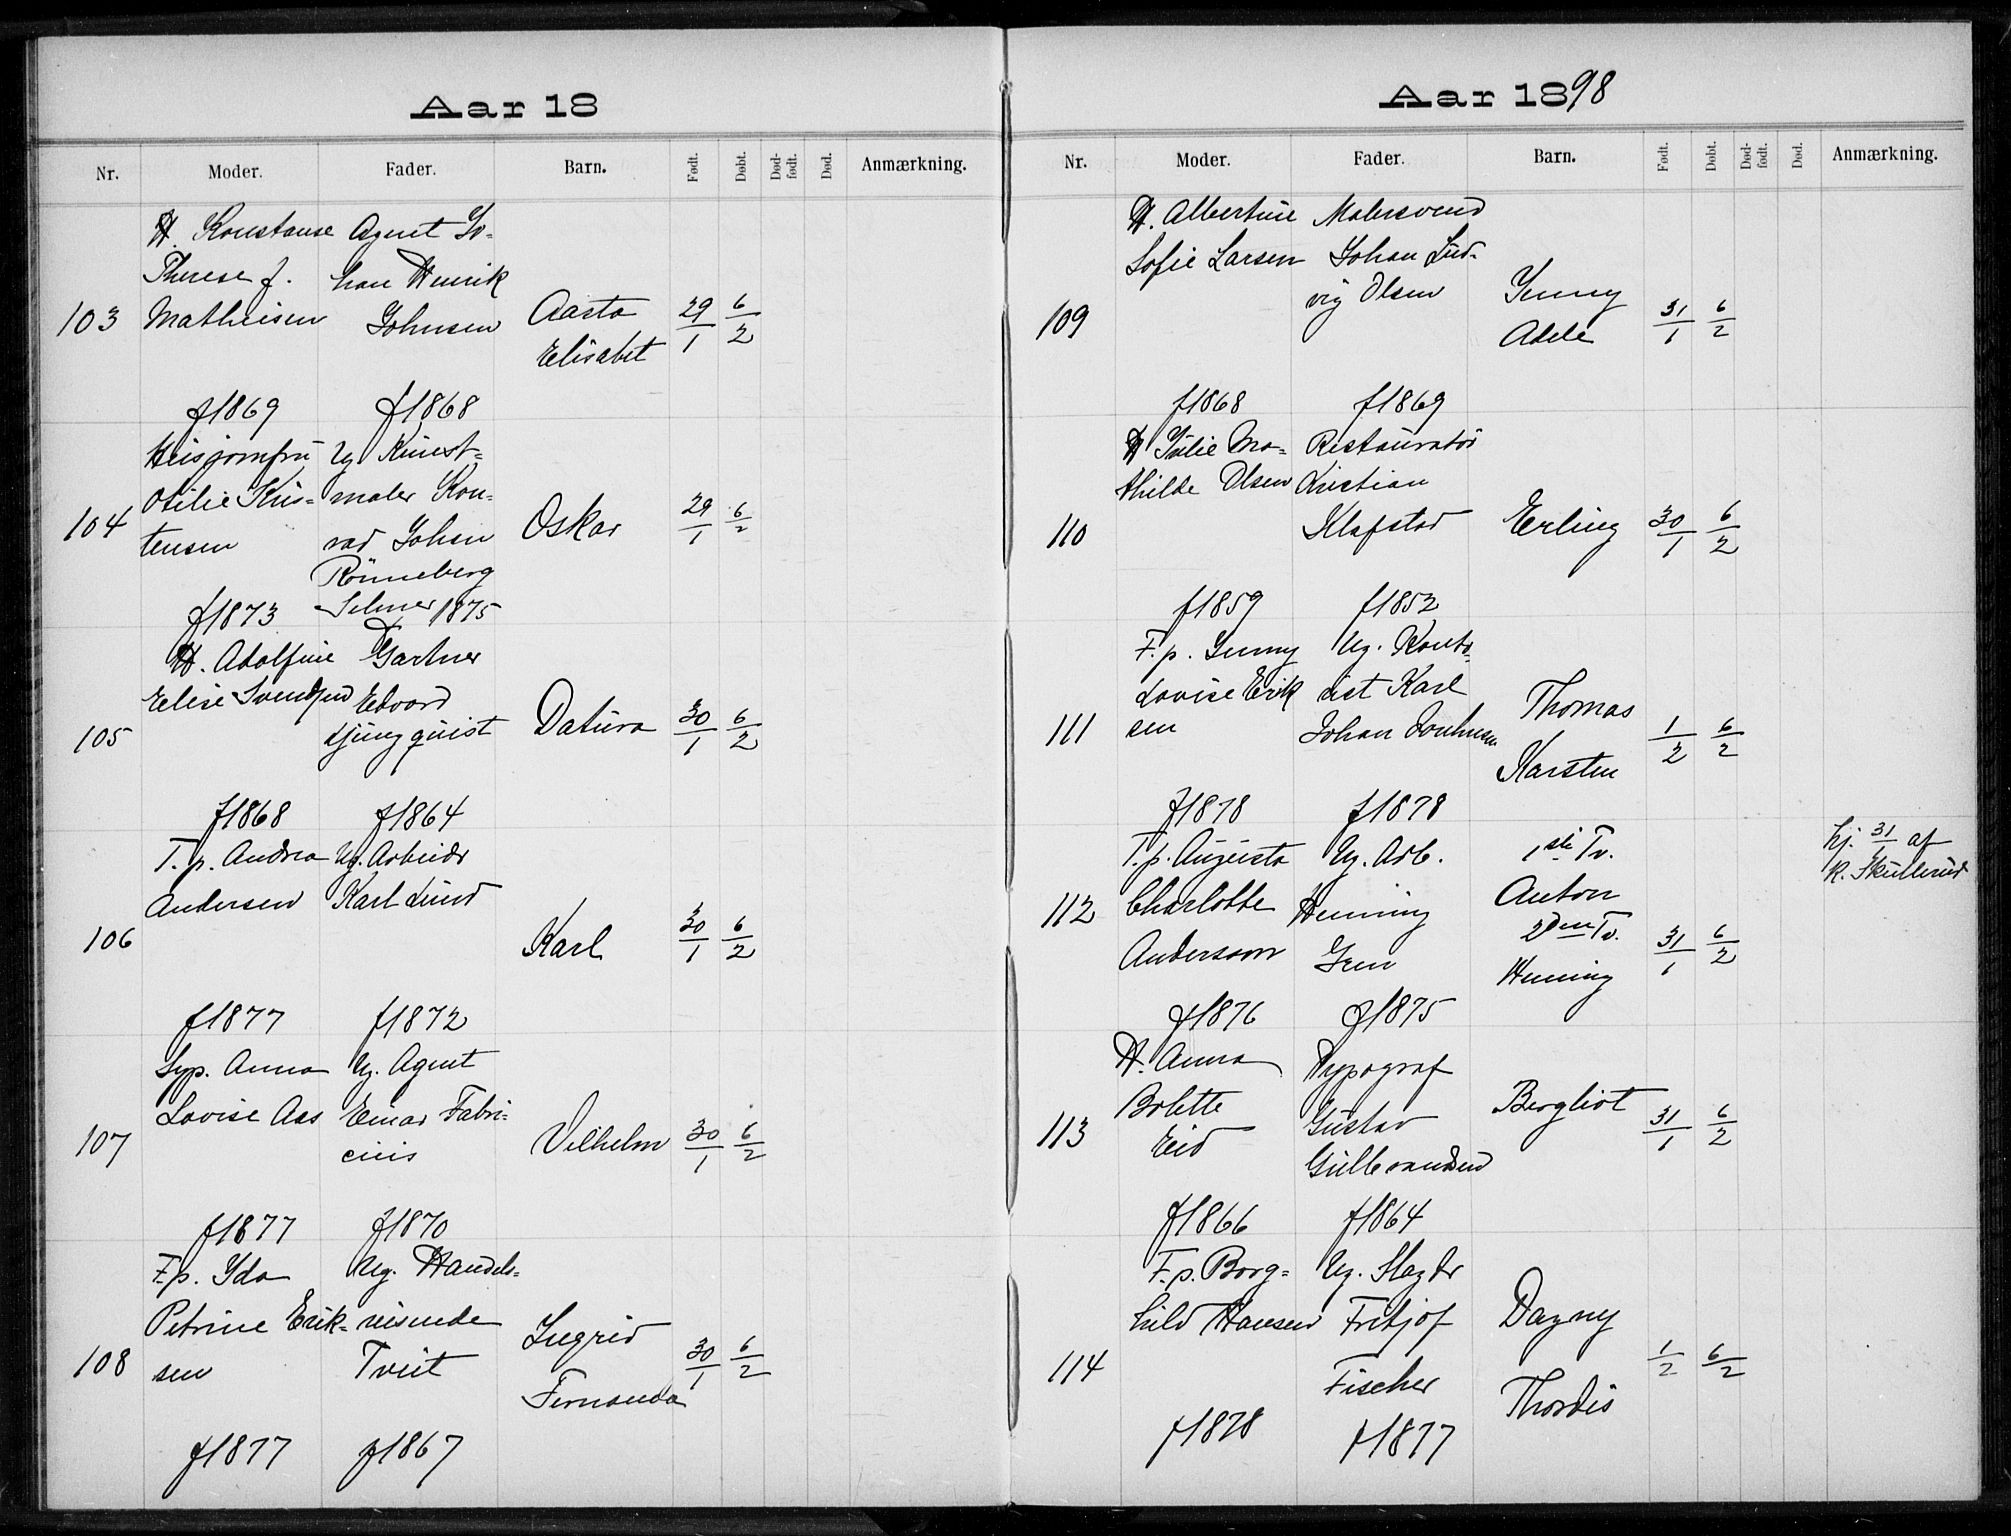 Aar 18
Nr. Moder. Fader. Barn. Født. Døbt. Død-født. Død. Anmærkning.
103
H. Konstanse
Therese J.
Mathisen
f 1869
Agent Jo-
han Henrik
Johnsen
f 1868
Aasta
Elisabet
29/1 6/2
104
Husjomfru
Otilie Kris-
tensen
f 1873
Ug Kunst-
maler Kon-
rad Johan
Rönneberg
Selmer 1875
Oskar
29/1 6/2
105
H. Adolfine
Elise Svendsen
f 1868
Gartner
Edvard
Ljungquist
f 1864
Datura
30/1 6/2
106
T.p. Andrea
Andersen
f 1877
Ug. Arbeider
Karl Lund
f 1872
Karl
30/1 6/2
107
Syp. Anna
Lovise Aas
f 1877
Ug. Agent
Einar Fabri-
cius
f 1870
Vilhelm
30/1 6/2
108
F.p. Ida
Petrine Erik-
sen
f 1877
Ug. Handels-
reisende
Tveit
f 1867
Ingrid
Fernanda
30/1 6/2
Aar 1898
Nr. Moder. Fader. Barn. Født. Døbt. Død-født. Død. Anmærkning.
109
H. Albertine
Sofie Larsen
f 1868
Malersvend
Johan Lud-
vig Olsen
f 1869
Jenny
Adele
31/1 6/2
110
H Julie Ma-
thilde Olsen
f 1859
Restauratør
Kristian
Klafstad
f 1852
Erling
30/1 6/2
111
F.p. Jenny
Lovise Erik
sen
f 1878
Ug. Konto-
rist Karl
Johan
f 1878
Thomas
Karsten
1/2 6/2
112
T.p. Augusta
Charlotte
Anderson
f 1876
Ug. Arb.
Henning
Gren
f 1875
1ste Tv.
Anton
2den Tv.
Henning
31/1 6/2
hj. 31/1 af
K. Skullerud
113
H. Anna
Bolette
Eid
f 1866
Typograf
Gustav
Gulbrandsen
f 1864
Bergliot
31/1 6/2
114
F.p. Borg-
hild Hansen
f 1878
Ug. Slagter
Fritjof
Fischer
f 1877
Dagny
Thordis
1/2 6/2